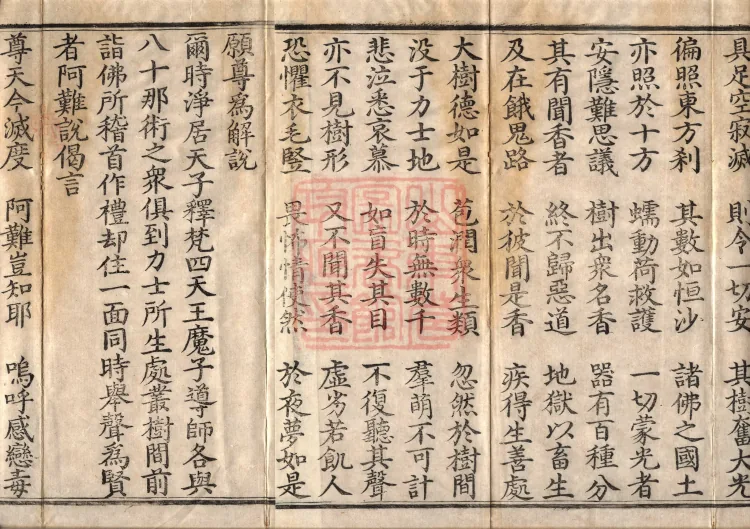 具足空寂滅　則令一切安　其樹奮大光
徧照東方刹　其數如恒沙　諸佛之國土
亦照於十方　蠕動荷救護　一切蒙光者
安隱難思議　樹出衆名香　器有百種分
其有聞香者　終不歸惡道　地獄以畜生
及在餓鬼路　於彼聞是香　疾得生善處
大樹德如是　苞潤衆生類　忽然於樹間
没于力士地　於時無數千　羣萌不可計
悲泣悉哀慕　如盲失其目　不復聽其聲
亦不見樹形　又不聞其香　虛劣若飢人
恐懼衣毛豎　畏怖情使然　於夜夢如是
願尊爲解說
爾時淨居天子釋梵四天王魔子導師各與
八十那術之衆俱到力士所生處叢樹間前
詣佛所稽首作禮却住一面同時舉聲爲賢
者阿難說偈言
尊天今滅度　阿難豈知耶　嗚呼感戀毒